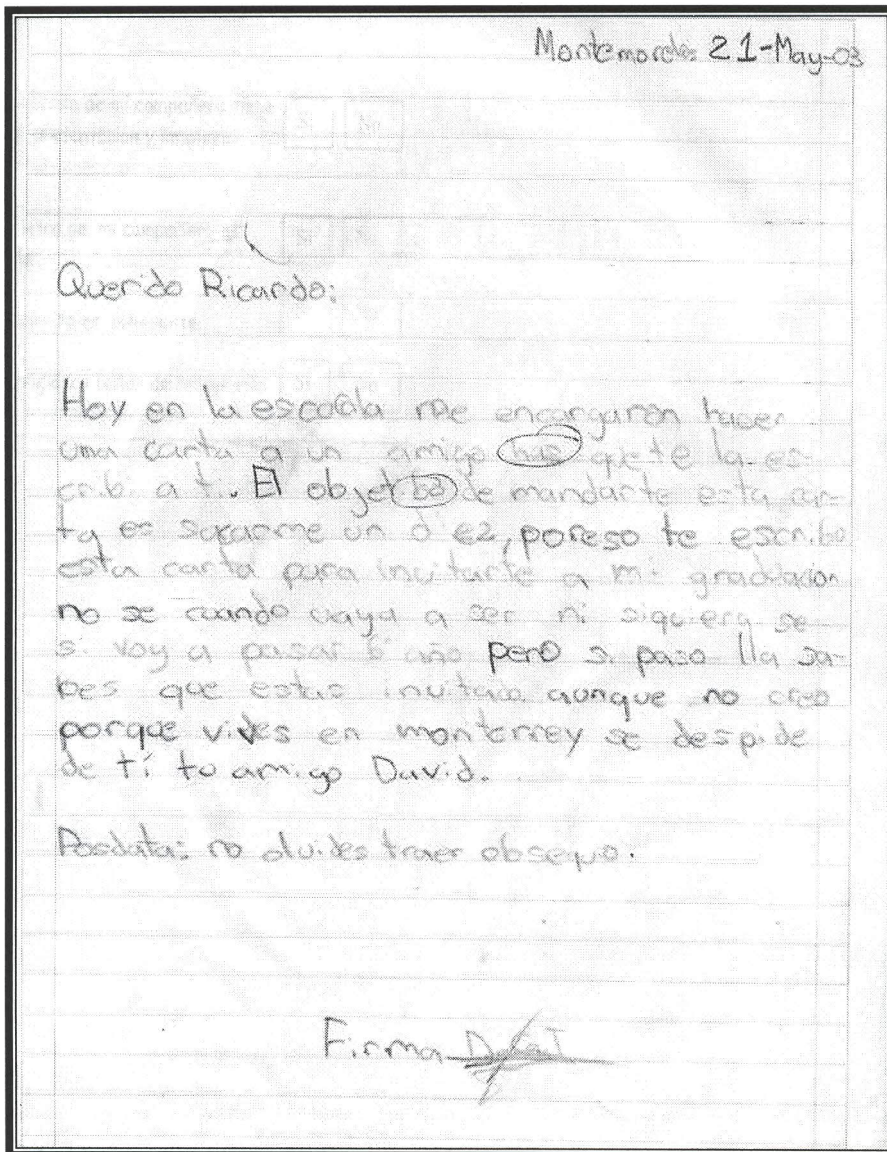 Montemorelos 21-May-03
Querido Ricardo:
Hoy en la escuela me encargaron hacer
una carta a un amigo has que te la es-
cribi a ti. El objetbo de mandarte esta car-
ta es sacarme un diez, poreso te escribo
esta carta para invitarte a mi graduacion
no se cuando vaya a ser ni siquiera se
si voy a pasar 6 año pero si paso lla sa-
bes que estas invitado aunque no creo
porque vives en monterrey se despide
de ti tu amigo David.
Posdata: no olvides traer obsequio.
Firma